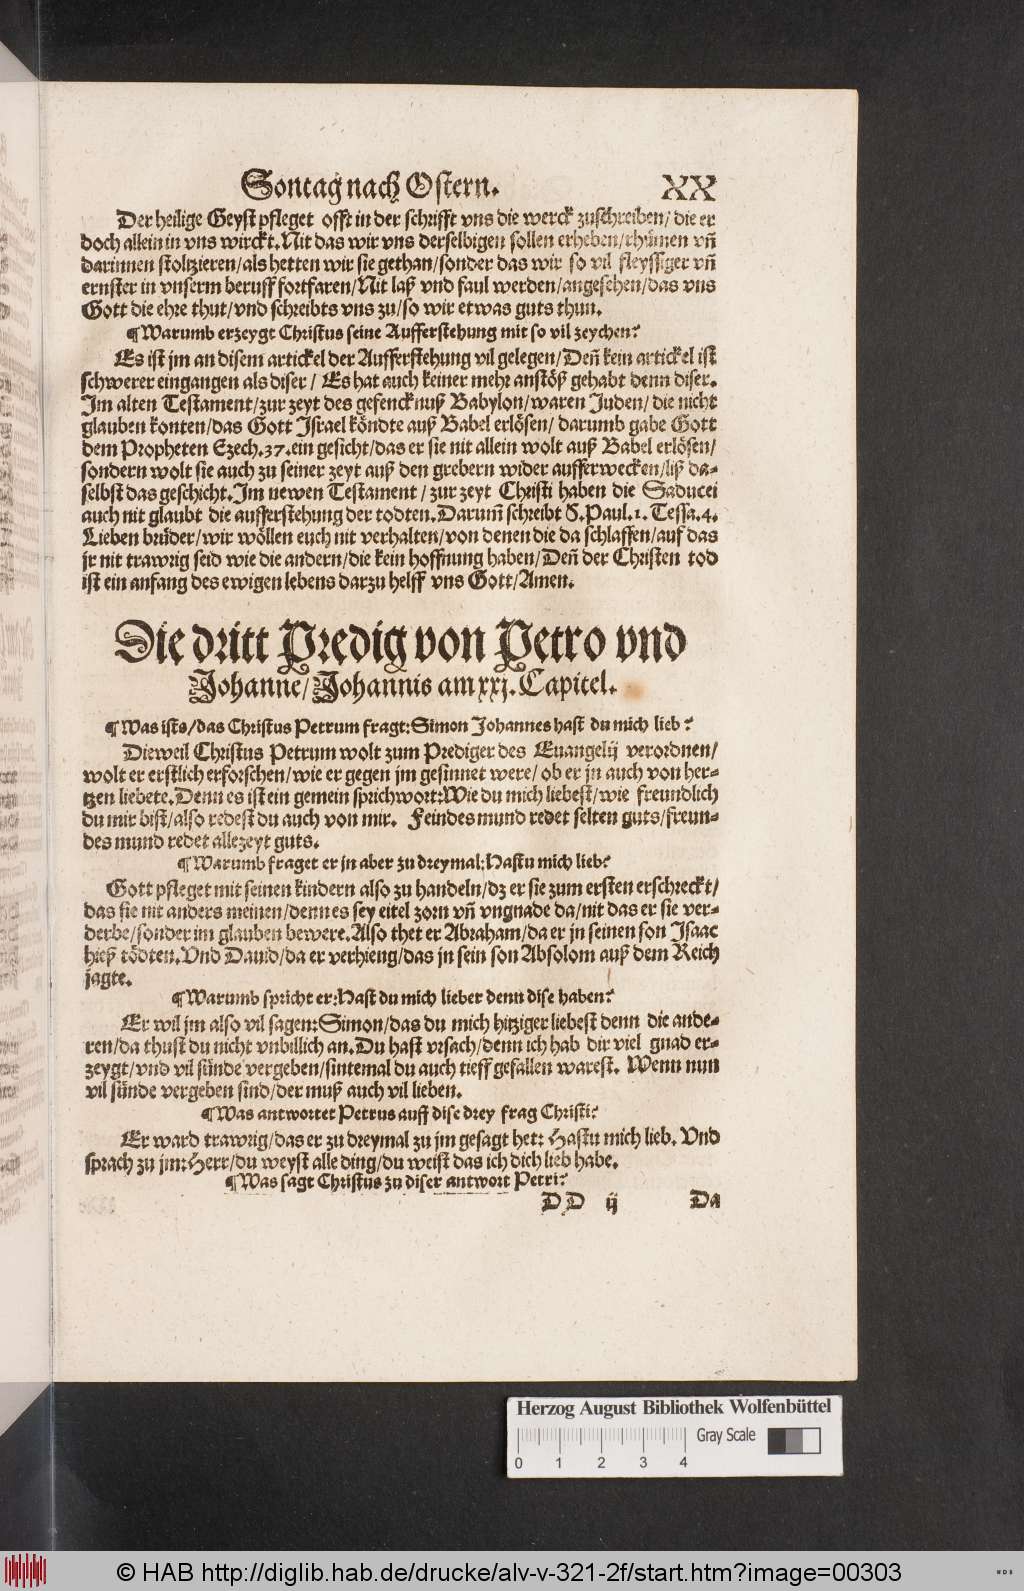 Sontag nach Ostern. XX
Der heilige Geyst pfleget offt in der schrifft vns die werck zuschreiben/ die er
doch allein in vns wirckt. Nit das wir vns derselbigen sollen erheben/rhümen vñ
darinnen stoltzieren/als hetten wir sie gethan/sonder das wir so vil fleyssiger vñ
ernster in vnserm beruff fortfaren/Nit laß vnd faul werden/angesehen/das vns
Gott die ehre thut/vnd schreibts vns zu/so wir etwas guts thun.
¶Warumb erzeygt Christus seine Aufferstehung mit so vil zeychen?
Es ist jm an disem artickel der Aufferstehung vil gelegen/Deñ kein artickel ist
schwerer eingangen als diser / Es hat auch keiner mehr anstöß gehabt denn diser.
Im alten Testament/zur zeyt des gefencknuß Babylon/waren Juden/ die nicht
glauben konten/das Gott Israel köndte auß Babel erlösen/ darumb gabe Gott
dem Propheten Ezech.37.ein gesicht/das er sie nit allein wolt auß Babel erlösen/
sondern wolt sie auch zu seiner zeyt auß den grebern wider aufferwecken/liß da=
selbst das geschicht.Im newen Testament / zur zeyt Christi haben die Saducei
auch nit glaubt die aufferstehung der todten.Darum̃ schreibt S.Paul.1.Tessa.4.
Lieben brüder/wir wöllen euch nit verhalten/von denen die da schlaffen/auf das
jr nit trawrig seid wie die andern/die kein hoffnung haben/Deñ der Christen tod
ist ein anfang des ewigen lebens darzu helff vns Gott/Amen.
Die dritt Predig von Petro vnd
Johanne/Johannis am xxj. Capitel.
¶Was ists/das Christus Petrum fragt:Simon Johannes hast du mich lieb?
Dieweil Christus Petrum wolt zum Prediger des Euangelij verordnen/
wolt er erstlich erforschen/wie er gegen jm gesinnet were/ ob er jn auch von her=
tzen liebete.Denn es ist ein gemein sprichwort:Wie du mich liebest/wie freundlich
du mir bist/also redest du auch von mir. Feindes mund redet selten guts/freun=
des mund redet allezeyt guts.
¶Warumb fraget er jn aber zu dreymal:Hastu mich lieb?
Gott pfleget mit seinen kindern also zu handeln/dz er sie zum ersten erschreckt/
das sie nit anders meinen/denn es sey eitel zorn vñ vngnade da/nit das er sie ver=
derbe/sonder im glauben bewere.Also thet er Abraham/da er jn seinen son Isaac
hieß tödten.Vnd Dauid/da er verhieng/das jn sein son Absolom auß dem Reich
jagte.
¶Warumb spricht er:Hast du mich lieber denn dise haben?
Er wil jm also vil sagen:Simon/das du mich hitziger liebest denn die ande=
ren/da thust du nicht vnbillich an.Du hast vrsach/denn ich hab dir viel gnad er=
zeygt/vnd vil sünde vergeben/sintemal du auch tieff gefallen warest. Wenn nun
vil sünde vergeben sind/der muß auch vil lieben.
¶Was antwortet Petrus auff dise drey frag Christi?
Er ward trawrig/das er zu dreymal zu jm gesagt het: Hastu mich lieb. Vnd
sprach zu jm:Herr/du weyst alle ding/du weist das ich dich lieb habe.
¶Was sagt Christus zu diser antwort Petri?
DD ij Da
Herzog August Bibliothek Wolfenbüttel
Gray Scale
0 1 2 3 4
© HAB http://diglib.hab.de/drucke/alv-v-321-2f/start.htm?image=00303